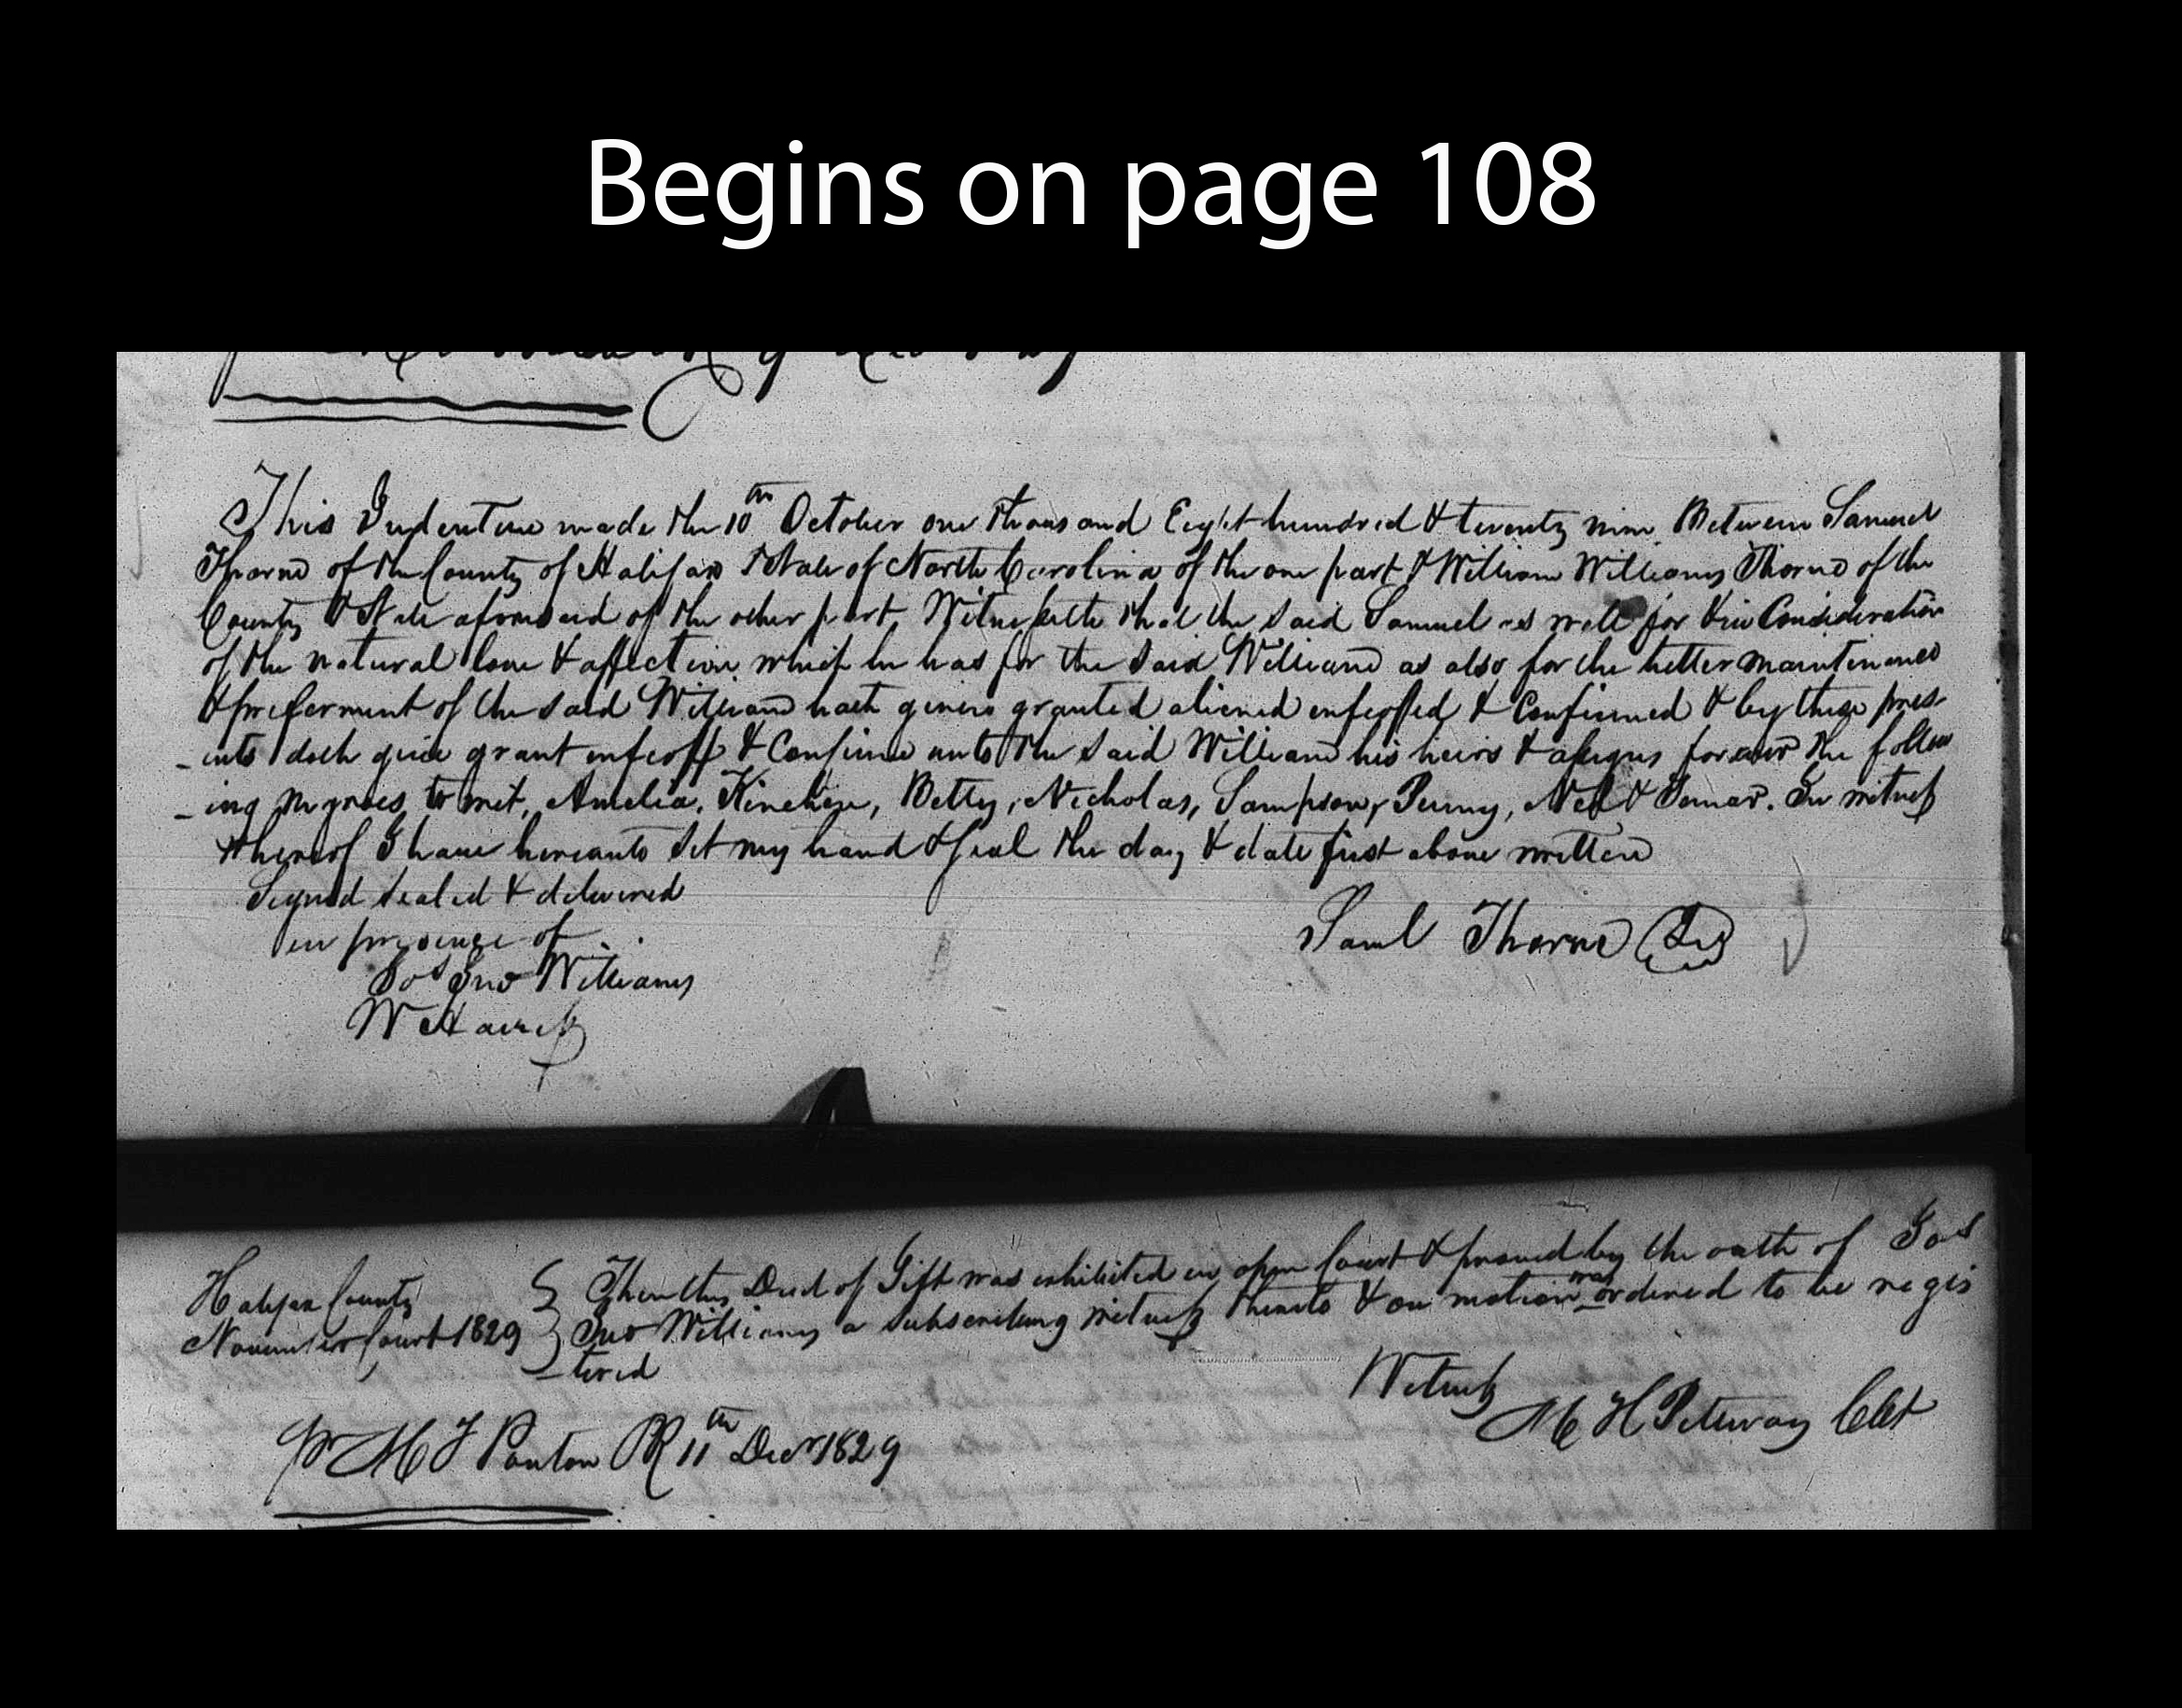 Begins on page 108
This Indenture made the 10th October one thousand Eight hundred & twenty nine Between Samuel
Thorne of the County of Halifax & State of North Carolina of the one part & William Williams Thorne of the
County & State aforesaid of the other part, Witnesseth that the said Samuel as well for the Consideration
of the natural love & affection which he has for the said William as also for the better maintenance
& preferment of the said William hath given granted aliened enfeoffed & Confirmed & by these pres-
-ents doth give grant enfeoff & Confirm unto the said William his heirs & assigns forever the follow
-ing negroes to wit, Amelia, Betty, Nicholas, Sampson, Penny, Ned & In witness
whereof I have hereunto set my hand & seal the day & date first above written
Signed sealed & delivered
in presence of
Saml Thorne
Jos Jno Williams
W
Halifax County
November Court 1829
Then this Deed of Gift was exhibited in open Court & proved by the oath of Jos
Jno Williams a subscribing witness thereto & on motion was ordered to be regis
-tered
Witness
M H Petway Clk
Pr M T Ponton PR 11th Decr 1829